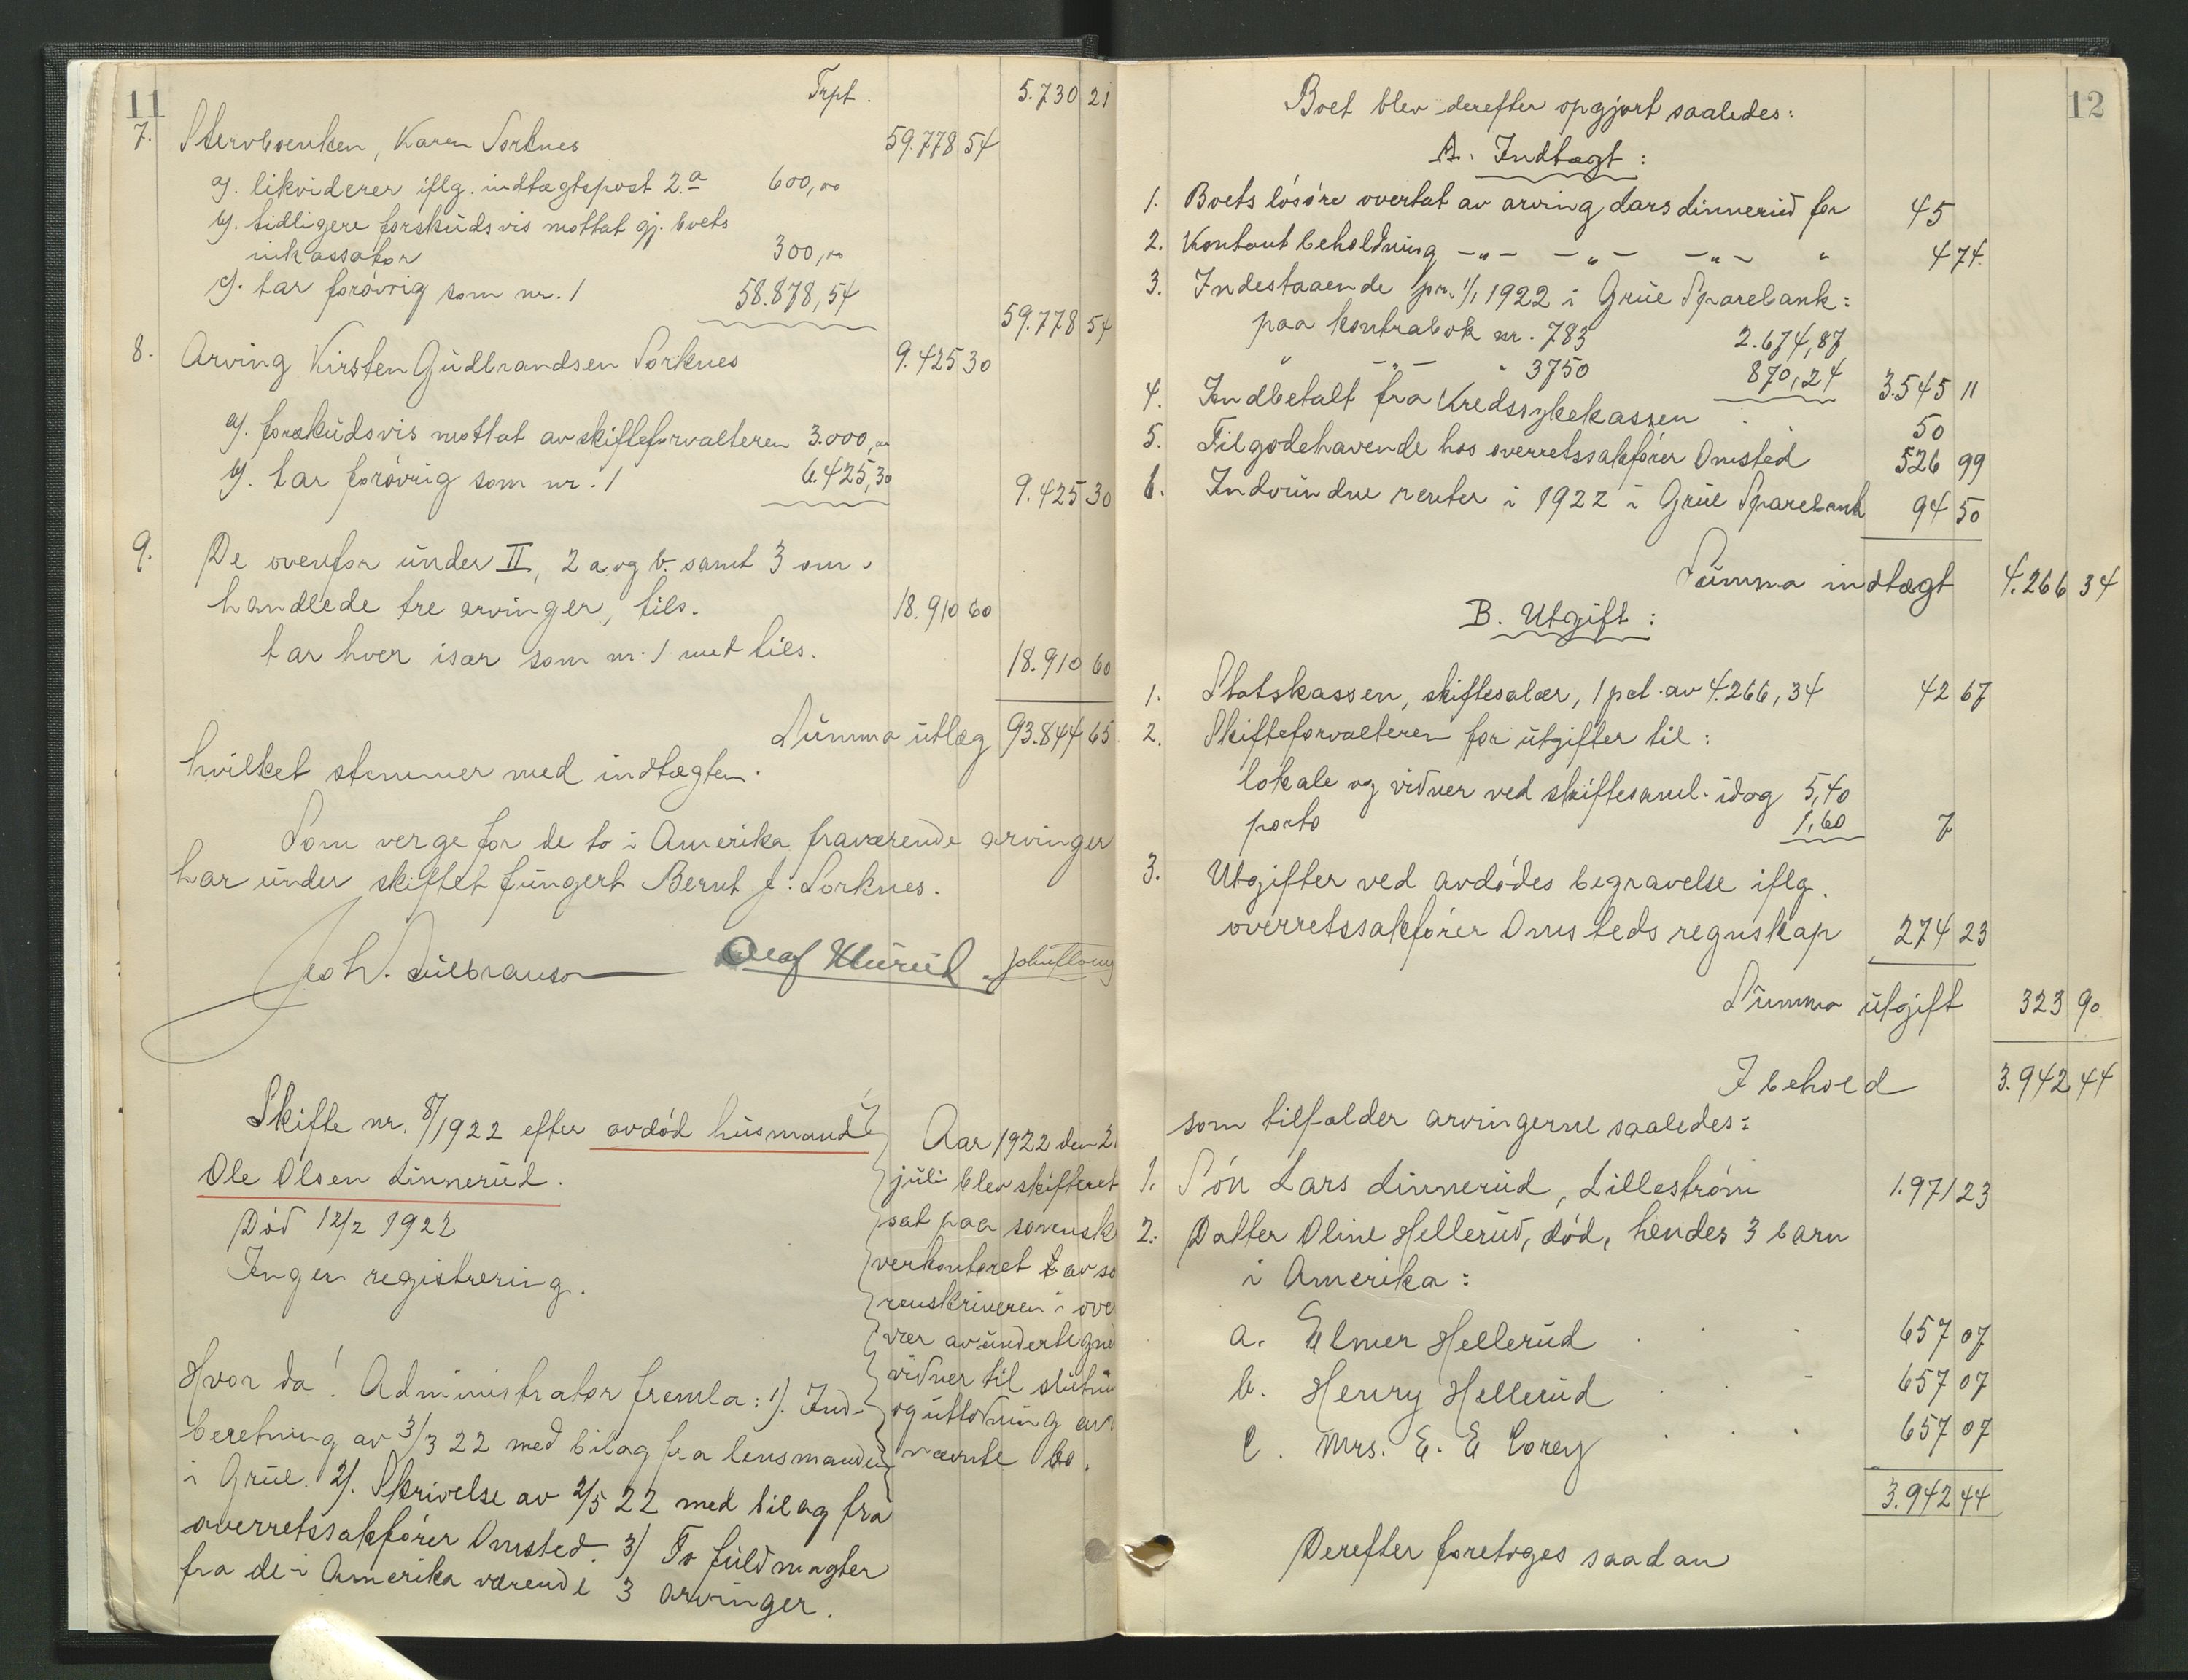 11
Trpt. 5.730 21
7. Stervboenken, Karen Sorknes 59.778 54
a). likviderer iflg. indtægtspost 2.a 600,00
b). tidligere forskudsvis mottat gj. boets
inkassator 300,00
c). tar forøvrig som nr. 1 58.878,54
59.778 54
8. Arving Kirsten Gudbrandsen Sorknes 9.425 30
a). forskudsvis mottat av skifteforvalteren 3.000,00
b). tar forøvrig som nr. 1 6.425,30 9.425 30
9. De ovenfor under II, 2 a og b. samt 3 om-
handlede tre arvinger, tils. 18.910 60
tar hver især som nr. 1 med tils. 18.910 60
Summa utlæg 93.844 65
hvilket stemmer med indtægten.
Som verge for de to i Amerika fraværende arvinger
har under skiftet fungert Bernt J. Sorknes.
Olaf
Skifte nr. 8/1922 efter avdød husmand
Ole Olsen Linnerud.
Død 12/2 1922
Ingen registrering.
Aar 1922 den 2
juli blev skifteret
sat paa sorensk
verkontoret av so
renskriveren i ove
vær av undertegne
vidner til slutni
og utlodning av
nævnte bo.
Hvor da! Administrator fremla: 1). Ind-
beretning av 3/3 22 med bilag fra lensmanden
i Grue. 2). Skrivelse av 2/5 22 med bilag fra
overretssakfører Omsted. 3) To fuldmagter
fra de i Amerika værende 3 arvinger.
12
Boet blev derefter opgjort saaledes:
A. Indtægt:
1. Boets løsøre overtat av arving Lars Linnerud for 45
2. Kontant beholdning -"- -"- -"- " 474.
3. Indestaaende pr. 1/1 1922 i Grue Sparebank:
paa kontrabok nr. 783 2.674,87
" -"- " 3750 870,24 3.545 11
4. Indbetalt fra Kredssykekassen 50
5. Tilgodehavende hos overretssakfører Omsted 526 99
6. Indvundne renter i 1922 i Grue Sparebank 94 50
Summa indtægt 4.266 34
B. Utgift:
1. Statskassen, skiftesalær, 1 pct. av 4.266,34 42 67
2. Skifteforvalteren for utgifter til:
lokale og vidner ved skiftesaml. idag 5,40
porto 1,60 7
3. Utgifter ved avdødes begravelse iflg.
overretssakfører Omsteds regnskap 274 23
Summa utgift 323 90
I behold 3.942 44
som tilfalder arvingerne saaledes:
1. Søn Lars Linnerud, Lillestrøm 1.971 23
2. Datter Oline Hellerud, død, hendes 3 barn
i Amerika:
a. Elmer Hellerud 657 07
b. Henry Hellerud 657 07
c. Mrs. E. E Corey 657 07
3.942 44
Derefter foretoges saadan